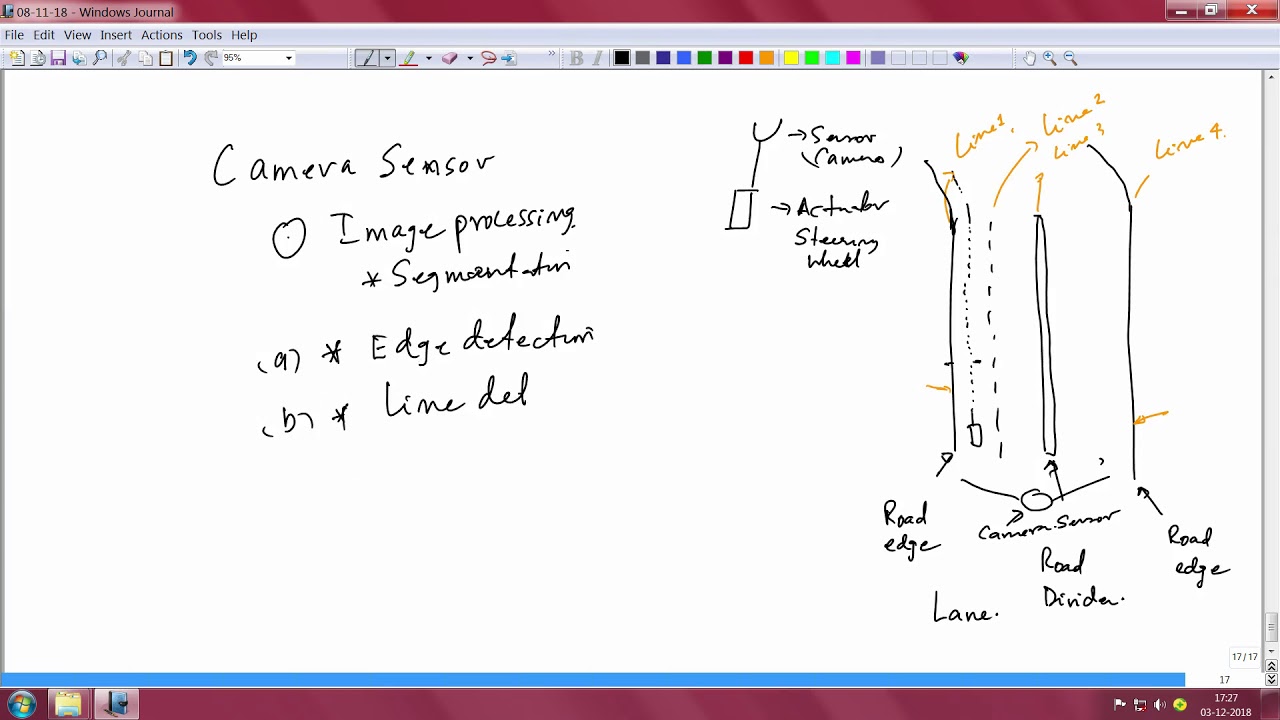 08-11-18 - Windows Journal
File Edit View Insert Actions Tools Help
95%
B I
Camera Sensor
Image processing.
* Segmentation
(a) * Edge detection
(b) * Line det
→ Sensor
(Camera)
→ Actuator
Steering
wheel
Line 1.
Line 2
Line 3
Line 4.
Road
edge
Camera Sensor
Road
Divider.
Road
edge
Lane.
17 / 17
17
17:27
03-12-2018